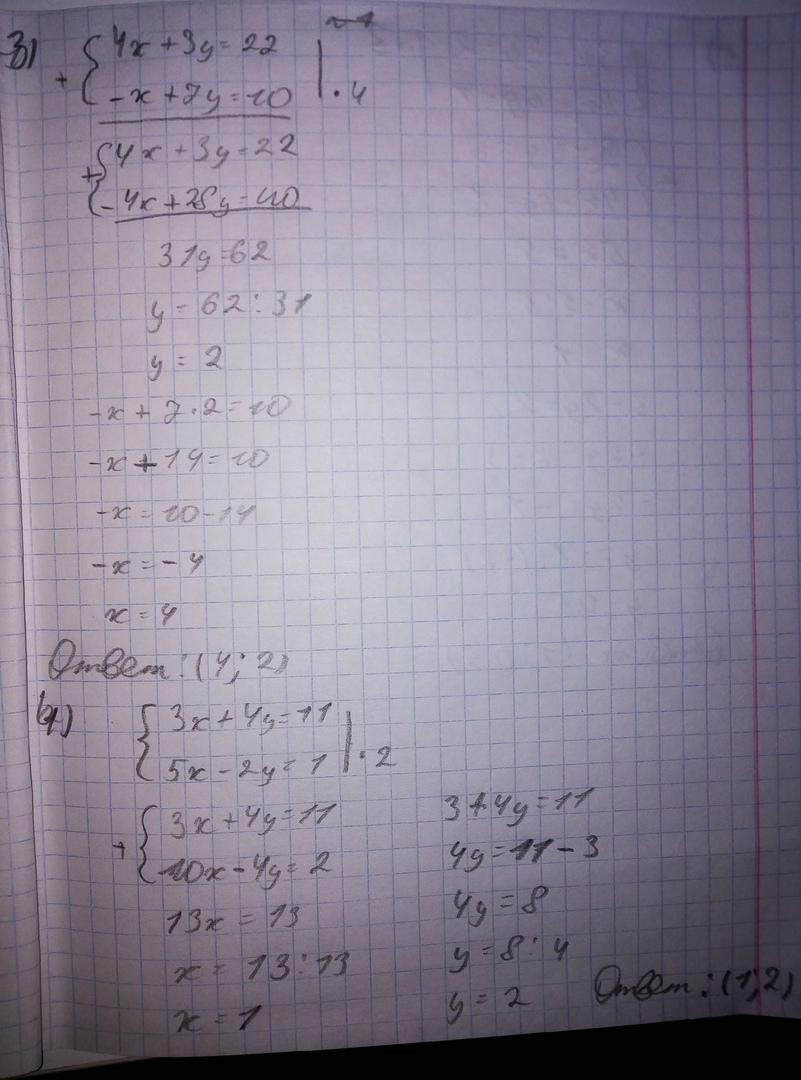 3)
4x + 3y = 22
+
-x + 7y = 10 | · 4
4x + 3y = 22
+
-4x + 28y = 40
31y = 62
y = 62 : 31
y = 2
-x + 7 · 2 = 10
-x + 14 = 10
-x = 10 - 14
-x = -4
x = 4
Ответ: (4; 2)
4)
3x + 4y = 11
5x - 2y = 1 | · 2
3x + 4y = 11
+
10x - 4y = 2
13x = 13
x = 13 : 13
x = 1
3 + 4y = 11
4y = 11 - 3
4y = 8
y = 8 : 4
y = 2
Ответ: (1; 2)